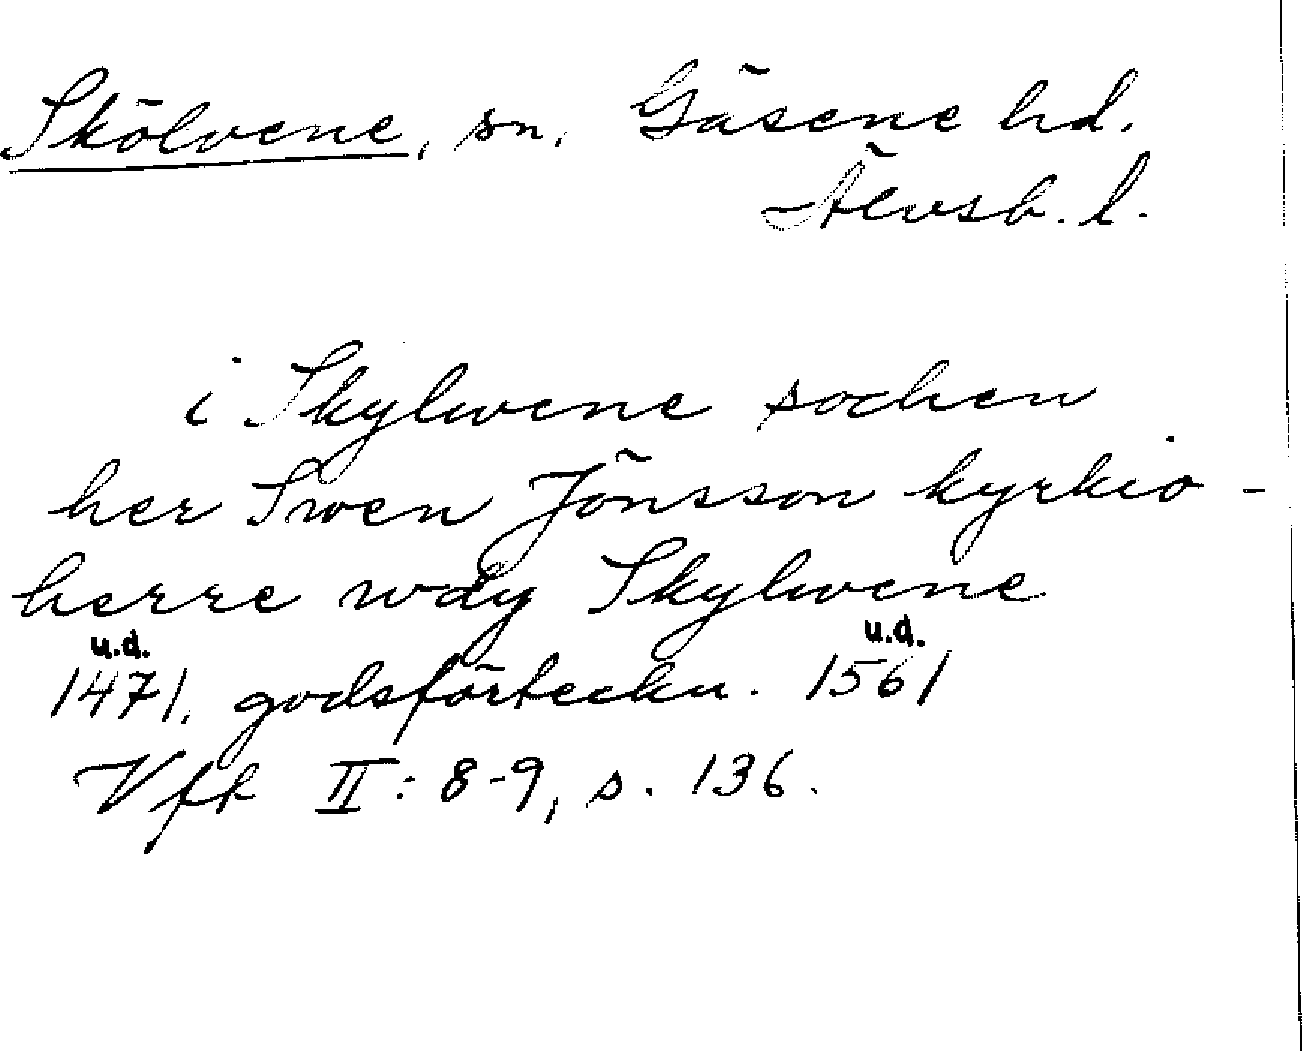 Skölvene, sn, Gäsene hd.
Älvsb. l.
i Skylwene sochen
her Swen Jönsson kyrkio-
herre wdy Skylwene
u.d. u.d.
1471, godsförteckn. 1561
Vfk II: 8-9, s. 136.